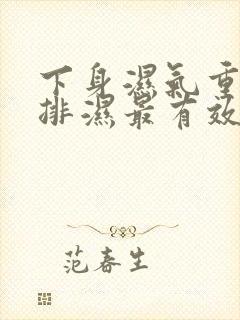 下身濕氣重
排濕最有效
范春生